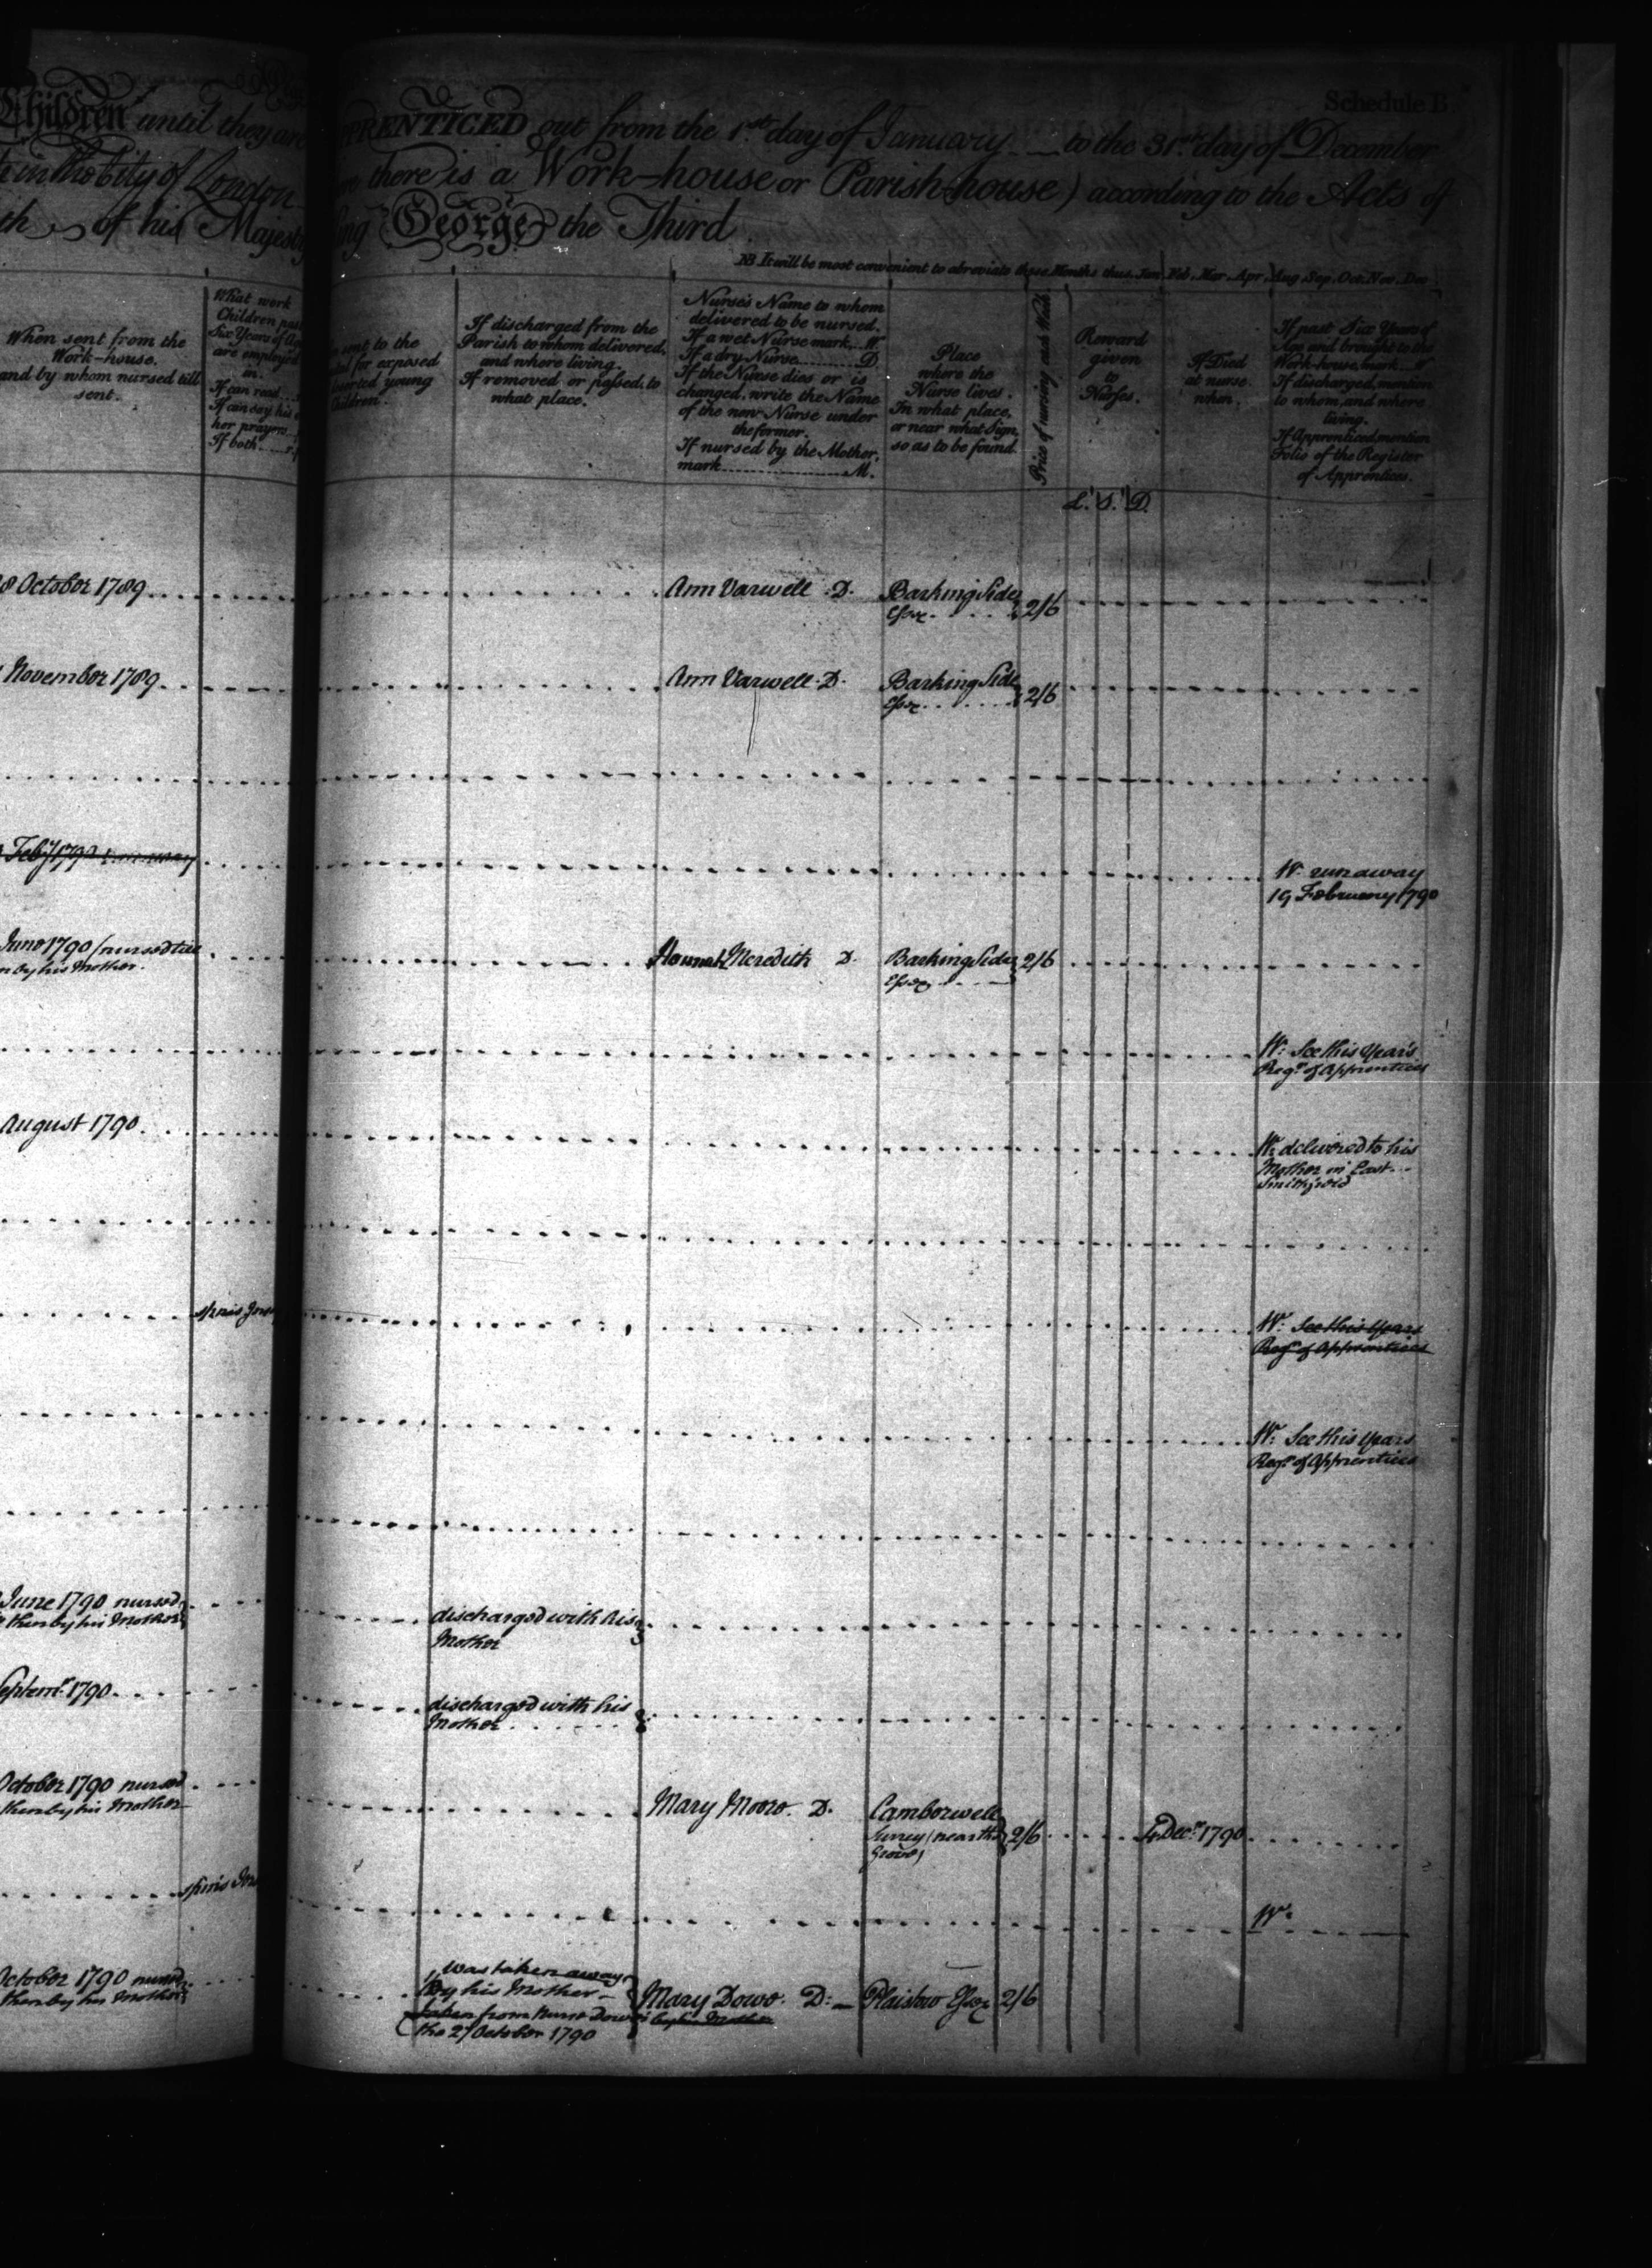 Schedule B.
Children until they are
APPRENTICED out from the 1st day of January to the 31st day of December
in the City of London
there is a Work-house or Parish-house) according to the Acts of
of his Majesty
King George the Third
NB It will be most convenient to abreviate these Months thus, Jan. Feb. Mar. Apr. Aug. Sep. Oct. Nov. Dec
When sent from the
Work-house.
and by whom nursed till
sent.
What work
Children past
Six Years of Age
are employed
in.
If can read
If can say his or
her prayers
If both
sent to the
for exposed
deserted young
Children.
If discharged from the
Parish to whom delivered,
and where living.
If removed or passed, to
what place.
Nurse's Name to whom
delivered to be nursed.
If a wet Nurse mark W
If a dry Nurse D
If the Nurse dies or is
changed, write the Name
of the new Nurse under
the former.
If nursed by the Mother,
mark M.
Place
where the
Nurse lives.
In what place,
or near what Sign,
so as to be found
Price of nursing each Week
Reward
given
to
Nurses.
L. S. D.
If Died
at nurse
when.
If past Six Years of
Age and brought to the
Work-house, mark W
If discharged, mention
to whom, and where
living.
If Apprenticed, mention
Folio of the Register
of Apprentices.
8 October 1789
Ann Varwell D. Barking Side 2/6
Essex
November 1789
Ann Varwell D. Barking Side 2/6
Essex
Feby 1790
W. run away
19 February 1790
June 1790 (nursed till
by his Mother.
Hannah Meredith D. Barking Side 2/6
Essex
W. See this Year's
Regr. of Apprentices
August 1790
W. delivered to his
Mother in East
Smithfield
W. See this Years
Regr. of Apprentices
W. See this Years
Regr. of Apprentices
June 1790 nursed
then by his Mother
discharged with his
Mother
Septemr. 1790
discharged with his
Mother
October 1790 nursed
then by his Mother
Mary Moore. D. Camberwell
Surrey (near the 2/6
Grove)
4 Decr. 1790
W.
October 1790 nursed
then by his Mother
was taken away
by his Mother
taken from Nurse Dowe
the 27 October 1790
Mary Dowe. D. Plaistow Essex 2/6